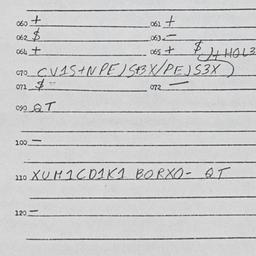 060 + 061 +
062 $ 063 -
064 + 065 + $ J+HOL3
070 CV1S+NPEJS+3X/PEJS3X
071 $ - 072 -
090 QT
100 -
110 XUM1CD1K1 BORXO- QT
120 -